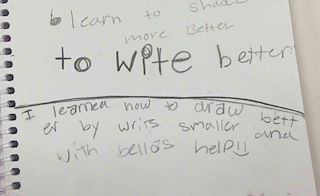 learn to shade
more Better
to write better
I learned how to draw bett
er by writs smaller and
with bellas help!:)